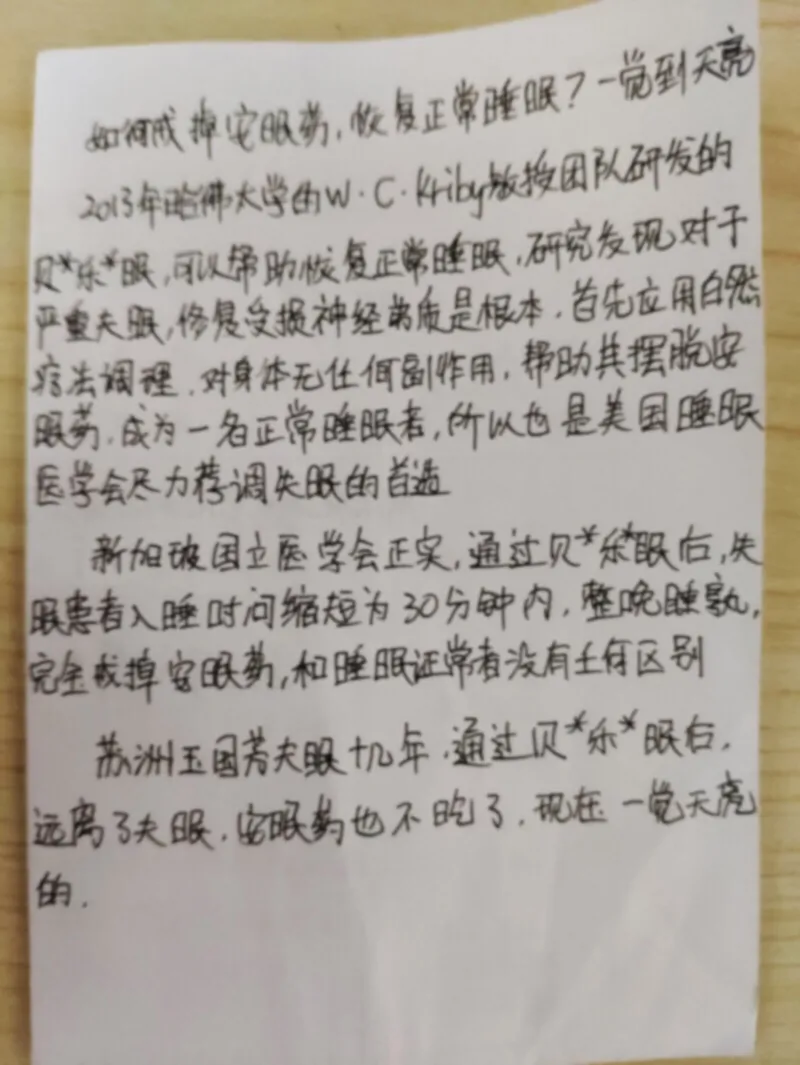 如何戒掉安眠药,恢复正常睡眠?一觉到天亮
2013年哈佛大学的W·C·Kriby教授团队研发的
贝*乐*眠,可以帮助恢复正常睡眠,研究发现对于
严重失眠,修复受损神经弟质是根本,首先应用自然
疗法调理,对身体无任何副作用,帮助其摆脱安
眠药,成为一名正常睡眠者,所以也是美国睡眠
医学会尽力荐调失眠的首选
新加坡国立医学会正实,通过贝*乐*眠后,失
眠患者入睡时间缩短为30分钟内,整晚睡熟,
完全戒掉安眠药,和睡眠证常者没有任何区别
苏洲王国芳失眠十几年,通过贝*乐*眠后,
远离了失眠,安眠药也不吃了,现在一觉天亮
的.